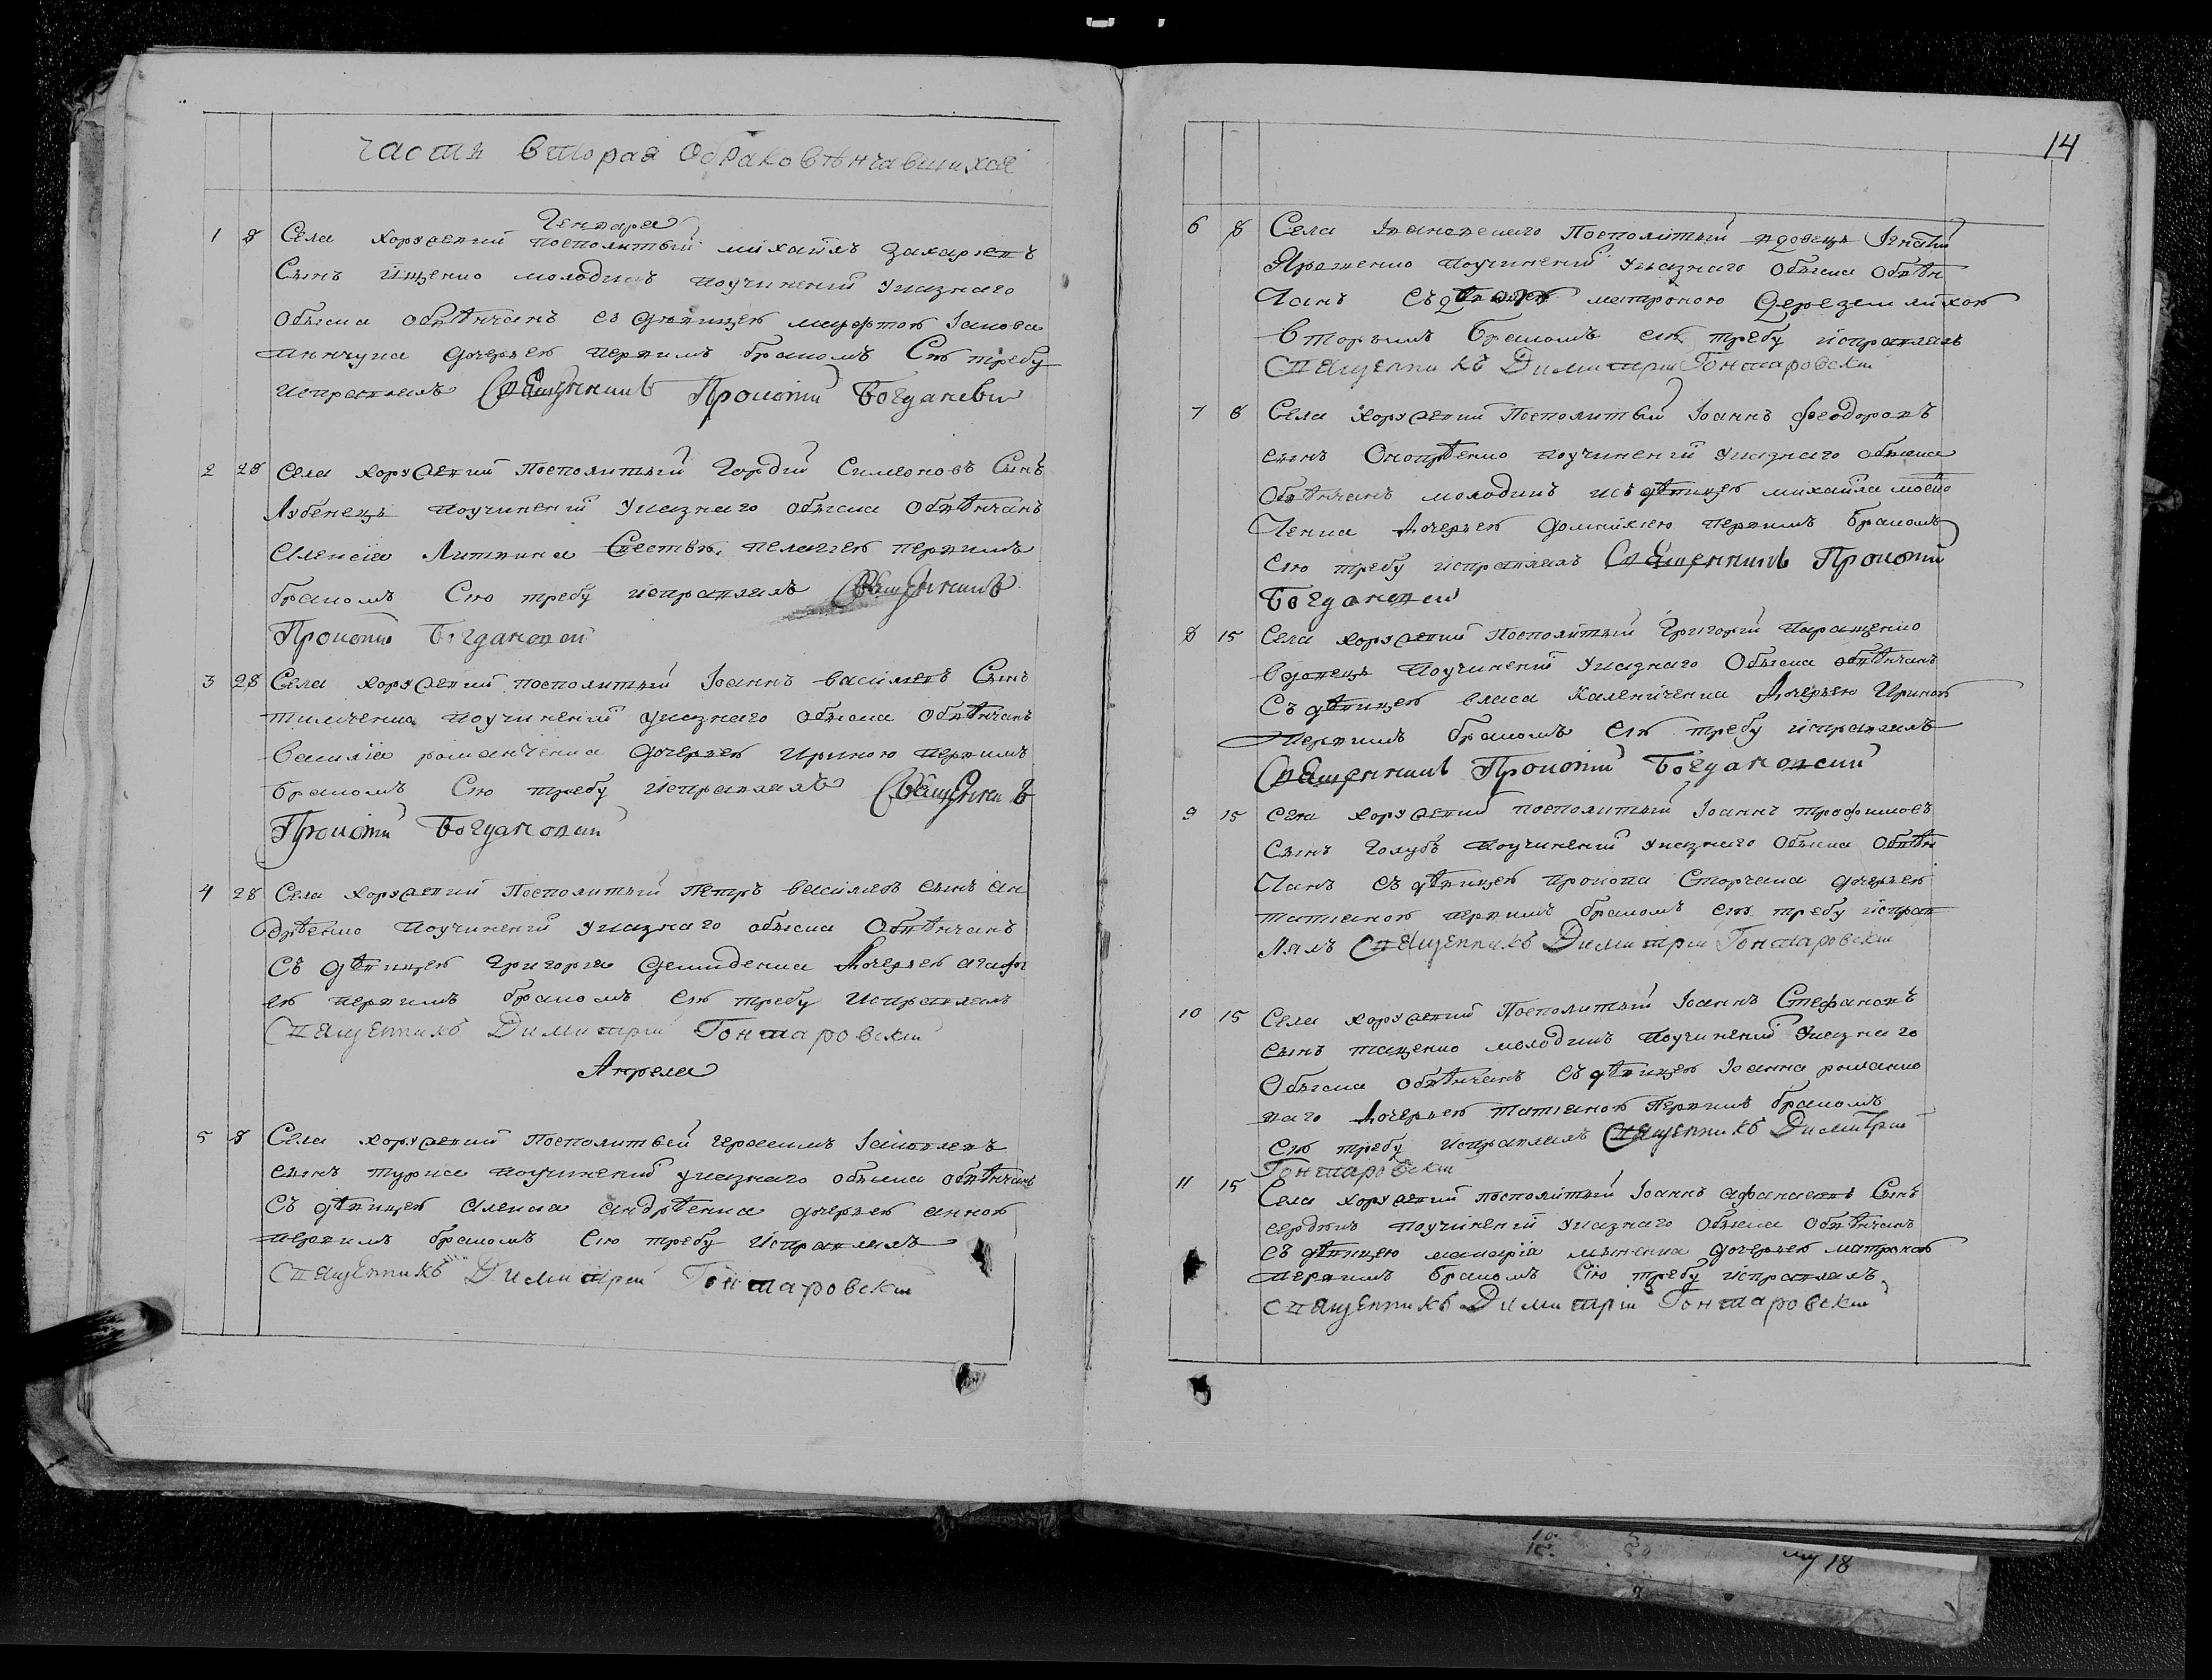 часть вторая о бракосвѣнчавшихся
Генвара
1 8 Села Хоружевки посполитый михайлъ Захаріевъ
Сынъ Ищенко молодикъ поучинении указнаго
обыска обвѣнчанъ съ дѣвицею марфою Іакова
дочерью первимъ бракомъ Сію требу
исправлялъ Священникъ Прокопій Богданови
2 28 Села Хоружевки Посполитый Гордій Симеоновъ Сынъ
Лубенецъ поучинении Указнаго обыска обвѣнчанъ
Алексіа Литвина Сестрою пелагіею первимъ
бракомъ Сію требу исправлялъ Священникъ
Прокопій Богдановскій
3 28 Села Хоружевки посполитый Іоаннъ василіевъ Сынъ
тимченко поучинении указнаго обыска обвѣнчанъ
Василіа романченка дочерью Ириною первимъ
бракомъ Сію требу исправлялъ Священникъ
Прокопій Богдановскій
4 28 Села Хоружевки Посполитый Петръ василіевъ сынъ ан
дрѣенко поучинении указнаго обыска Обвѣнчанъ
Съ дѣвицею Григоріа Демиденка Дочерью агафі
ею первимъ бракомъ сію требу Исправлялъ
Священникъ Димитрій Гонтаровскій
Апреля
5 8 Села Хоружевки Посполитый Герасимъ Іаковлевъ
сынъ турка поучинении указнаго обыска обвѣнчанъ
Съ дѣвицею Алекса андрѣенка дочерью анною
первимъ бракомъ Сію требу Исправлялъ
Священникъ Димитрій Гонтаровскій
14
6 8 Села Ивановскаго Посполитый вдовецъ Ігнатій
Яременко поучинении указнаго обыска обвѣн
чанъ съ матроною
вторымъ бракомъ сію требу исправлялъ
Священникъ Димитрій Гонтаровскій
7 8 Села Хоружевки Посполитый Іоаннъ феодоровъ
сынъ поучинении указнаго обыска
Обвѣнчанъ молодикъ исъ дѣвицею михайла мосѣ
Ченка Дочерью домникіею первимъ бракомъ
сію требу исправлялъ Священникъ Прокопій
Богдановскій
8 15 Села Хоружевки Посполитый Григорій Паращенко
вдовецъ поучинении указнаго Обыска обвѣнчанъ
Съ дѣвицею власа Каленіченка Дочерью Ириною
Первимъ бракомъ сію требу исправлялъ
Священникъ Прокопій Богдановскій
9 15 Села Хоружевки посполитый Іоаннъ трофимовъ
Сынъ Голубъ поучинении указнаго Обыска Обвѣн
Чанъ съ дѣвицею прокопа Сторчака дочерью
татіаною первимъ бракомъ сію требу исправ
лялъ Священникъ Димитрій Гонтаровскій
10 15 Села Хоружевки Посполитый Іоаннъ Стефановъ
сынъ тащенко молодикъ поучинении Указнаго
Обыска обвѣнчанъ съ дѣвицею Іоанна романко
ваго Дочерью татіаною Первимъ бракомъ
Сію требу исправлялъ Священникъ Димитрій
Гонтаровскій
11 15 Села Хоружевки посполитый Іоаннъ афанасіевъ Сынъ
сердюкъ поучинении указнаго обыска обвѣнчанъ
съ дѣвицею макаріа дочерью матроною
первимъ бракомъ Сію требу исправлялъ
священникъ Димитрій Гонтаровскій
18